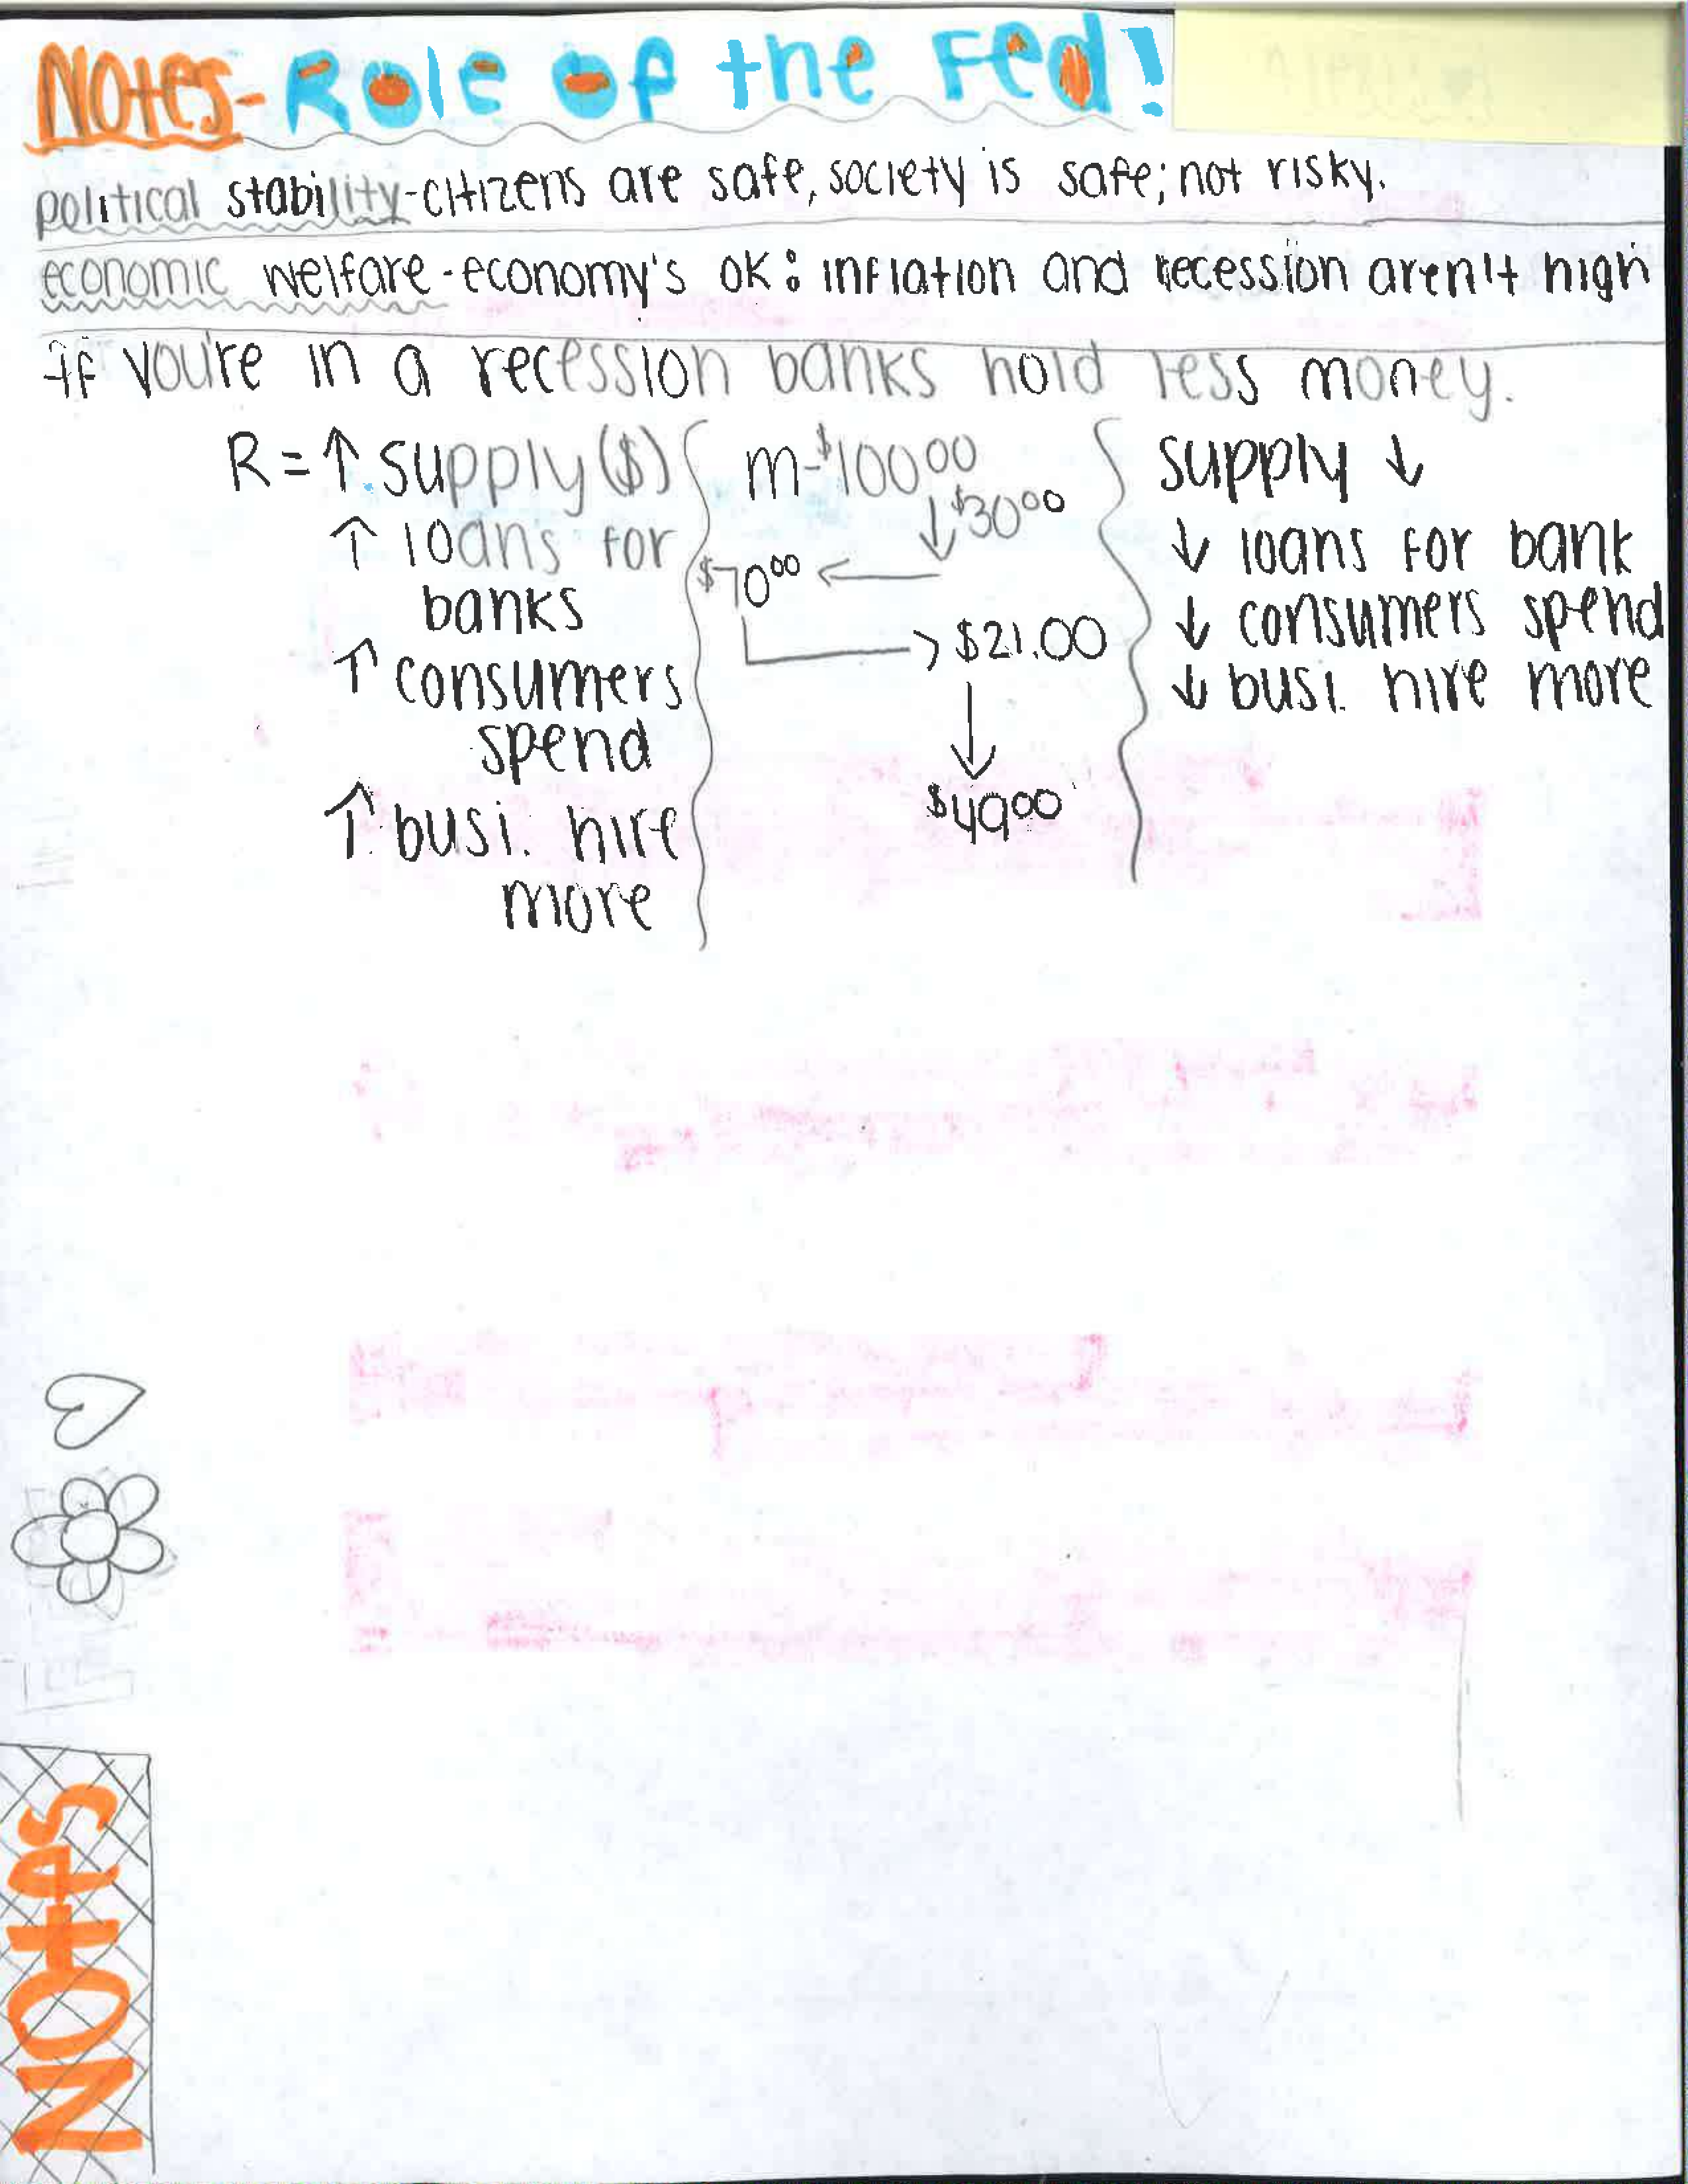 Notes - Role of the Fed!
political stability - citizens are safe, society is safe; not risky.
economic welfare - economy's ok: inflation and recession aren't high
If you're in a recession banks hold less money.
R = ↑ supply ($)
↑ loans for
banks
↑ consumers
spend
↑ busi. hire
more
m - $100 00
↓ $30 00
$70 00 ←
> $21.00
↓
$49 00
supply ↓
↓ loans for bank
↓ consumers spend
↓ busi. hire more
NOtes